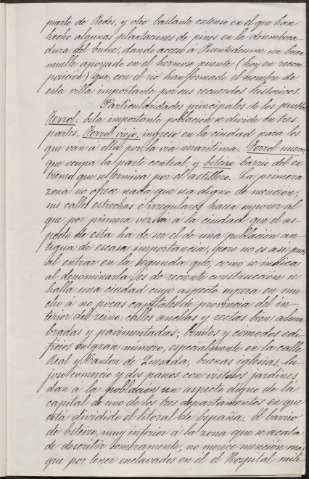 puerto de Redes, y otro bastante extenso en el que se han
hecho algunas plantaciones de pinos en la desemboca
dura del Eume, dando acceso á Puentedeume un buen
muelle apoyado en el hermoso puente (hoy en recom
posición) que con el rio han formado el nombre de
esta villa importante por sus recuerdos históricos.
Particularidades principales de los pueblos
Ferrol. Esta importante población se divide en tres
partes. Ferrol viejo, ingreso en la ciudad para los
que van á ella por la via maritima; Ferrol nuevo
que ocupa la parte central, y Esteiro barrio del ex
tremo que termina por el astillero. La primera
zona no ofrece nada que sea digno de mención;
sus calles estrechas é irregulares hacen suponer al
que por primera vez va á la ciudad que el as
pecto de esta ha de ser el de una población an
tigua de escasa importancia, pero no es así pues
al entrar en la segunda que, como se indica
al denominarla, es de reciente construcción se
halla una ciudad cuyo aspecto mejora en mu
cho á no pocas capitales de provincia del in
terior del reino; calles anchas y rectas bien alum
bradas y pavimentadas; bonitos y cómodos edi
ficios en gran número, especialmente en la calle
Real y Cantón de Lusada, buenas iglesias, la
jurisconsorcio y dos paseos con vistosos jardines
dan á la población un aspecto digno de la
capital de uno de los tres departamentos en que
está dividido el litoral de España. El barrio
de Esteiro, muy inferior á la zona que se acaba
de describir someramente, no merece mención mas
que por tener enclavados en él el Hospital mili-